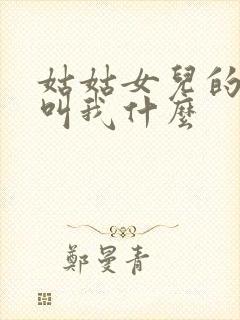 姑姑女兒的
叫我什麼
鄭曼青